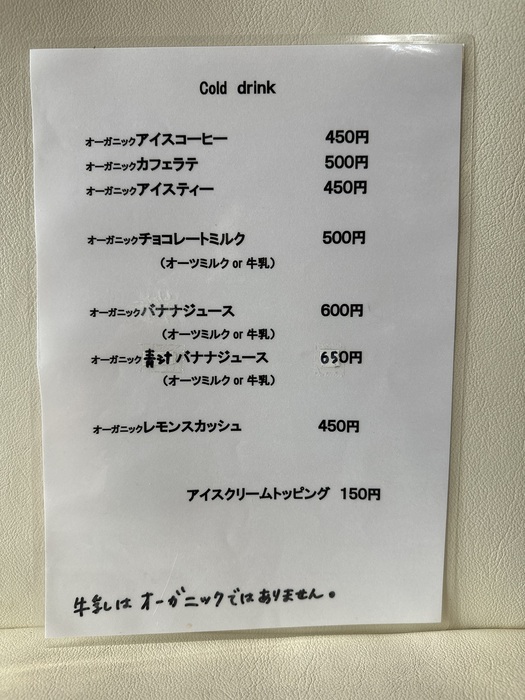 Cold drink
オーガニックアイスコーヒー 450円
オーガニックカフェラテ 500円
オーガニックアイスティー 450円
オーガニックチョコレートミルク 500円
（オーツミルク or 牛乳）
オーガニックバナナジュース 600円
（オーツミルク or 牛乳）
オーガニック青汁バナナジュース 650円
（オーツミルク or 牛乳）
オーガニックレモンスカッシュ 450円
アイスクリームトッピング 150円
牛乳はオーガニックではありません。